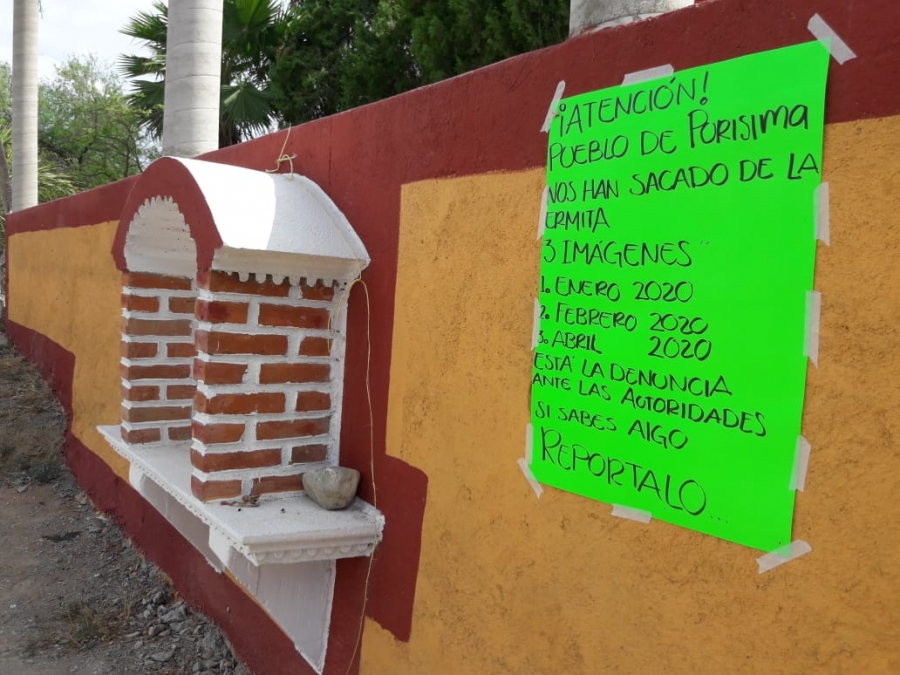 ¡ATENCIÓN!
PUEBLO DE PORISIMA
NOS HAN SACADO DE LA
ERMITA
3 IMÁGENES"
1. ENERO 2020
2. FEBRERO 2020
3. ABRIL 2020
ESTÁ LA DENUNCIA
ANTE LAS AUTORIDADES
SI SABES AlGO
REPORTALO...